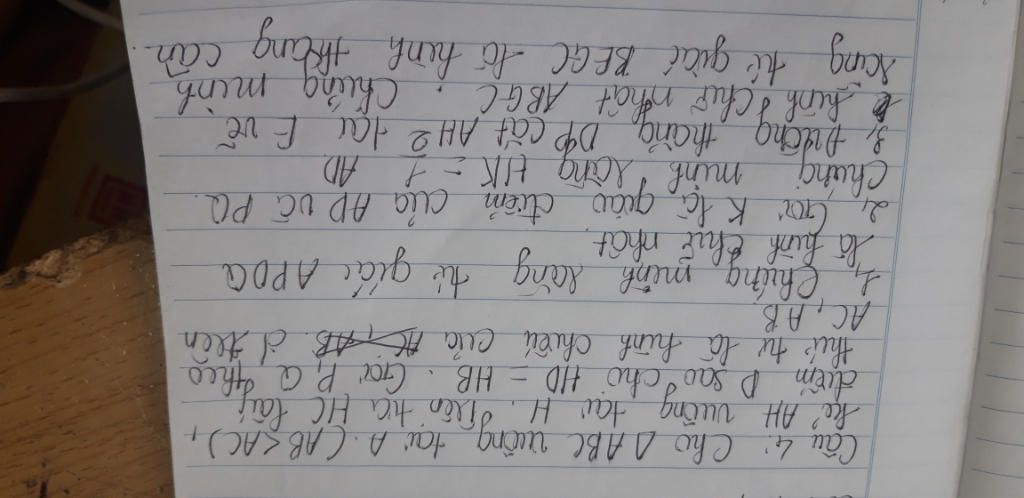 Câu 4: Cho ΔABC vuông tại A. (AB < AC),
kẻ AH vuông tại H. Trên tia HC lấy
điểm D sao cho HD = HB. Gọi P, Q theo
thứ tự là hình chiếu của D trên
AC, AB
1, Chứng minh rằng tứ giác APDQ
là hình chữ nhật.
2, Gọi K là giao điểm của AD và PQ.
Chứng minh rằng HK = 1/2 AD
3, Đường thẳng DP cắt AH tại E vẽ
hình chữ nhật ABGC. Chứng minh
rằng tứ giác BEGC là hình thang cân.